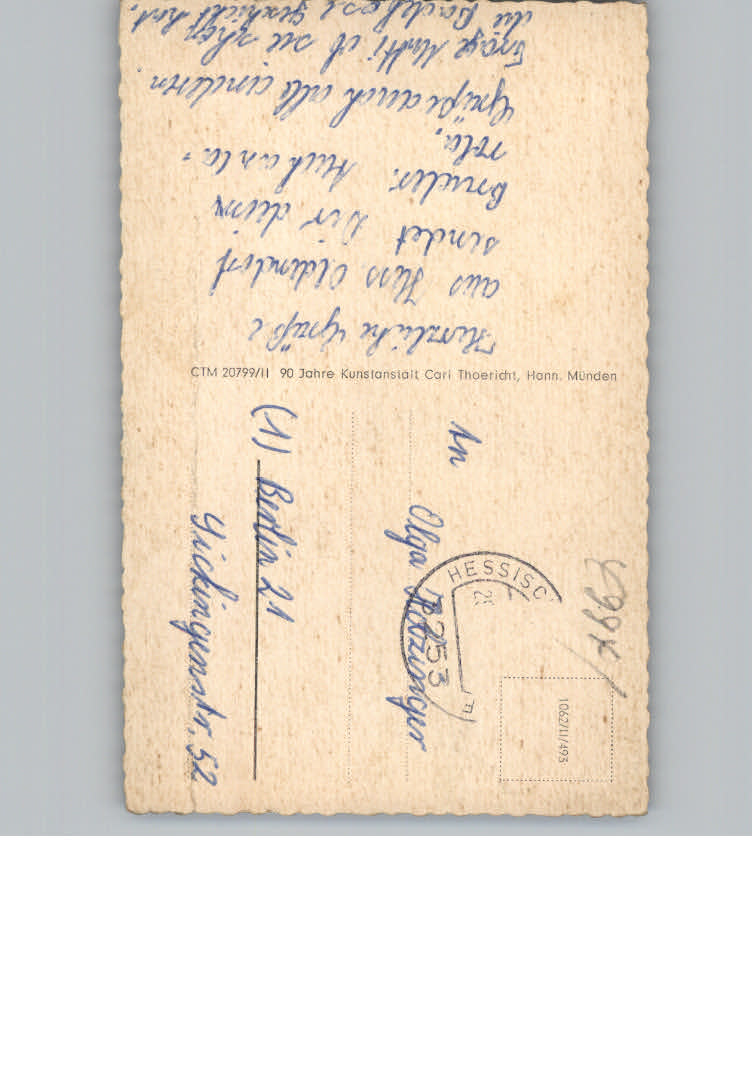 Herzliche Grüße
aus Hess Oldendorf
sendet Dir dein
Bruder.
Grüße auch alle anderen.
Frage Mutti ob sie schon
die Badehose geschickt hat.
CTM 20799/II 90 Jahre Kunstanstalt Carl Thoericht, Hann. Münden
An
Olga
(1) Berlin 21
Sickingenstr. 52
HESSISC
3253
1062/II/493